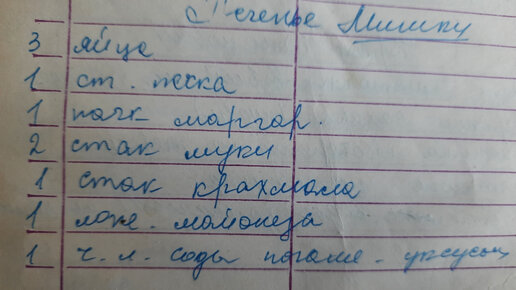 Печенье Мишку
3 яйца
1 ст. песка
1 пачк маргар.
2 стак муки
1 стак крахмала
1 лож. майонеза
1 ч. л. соды погаш. уксусом